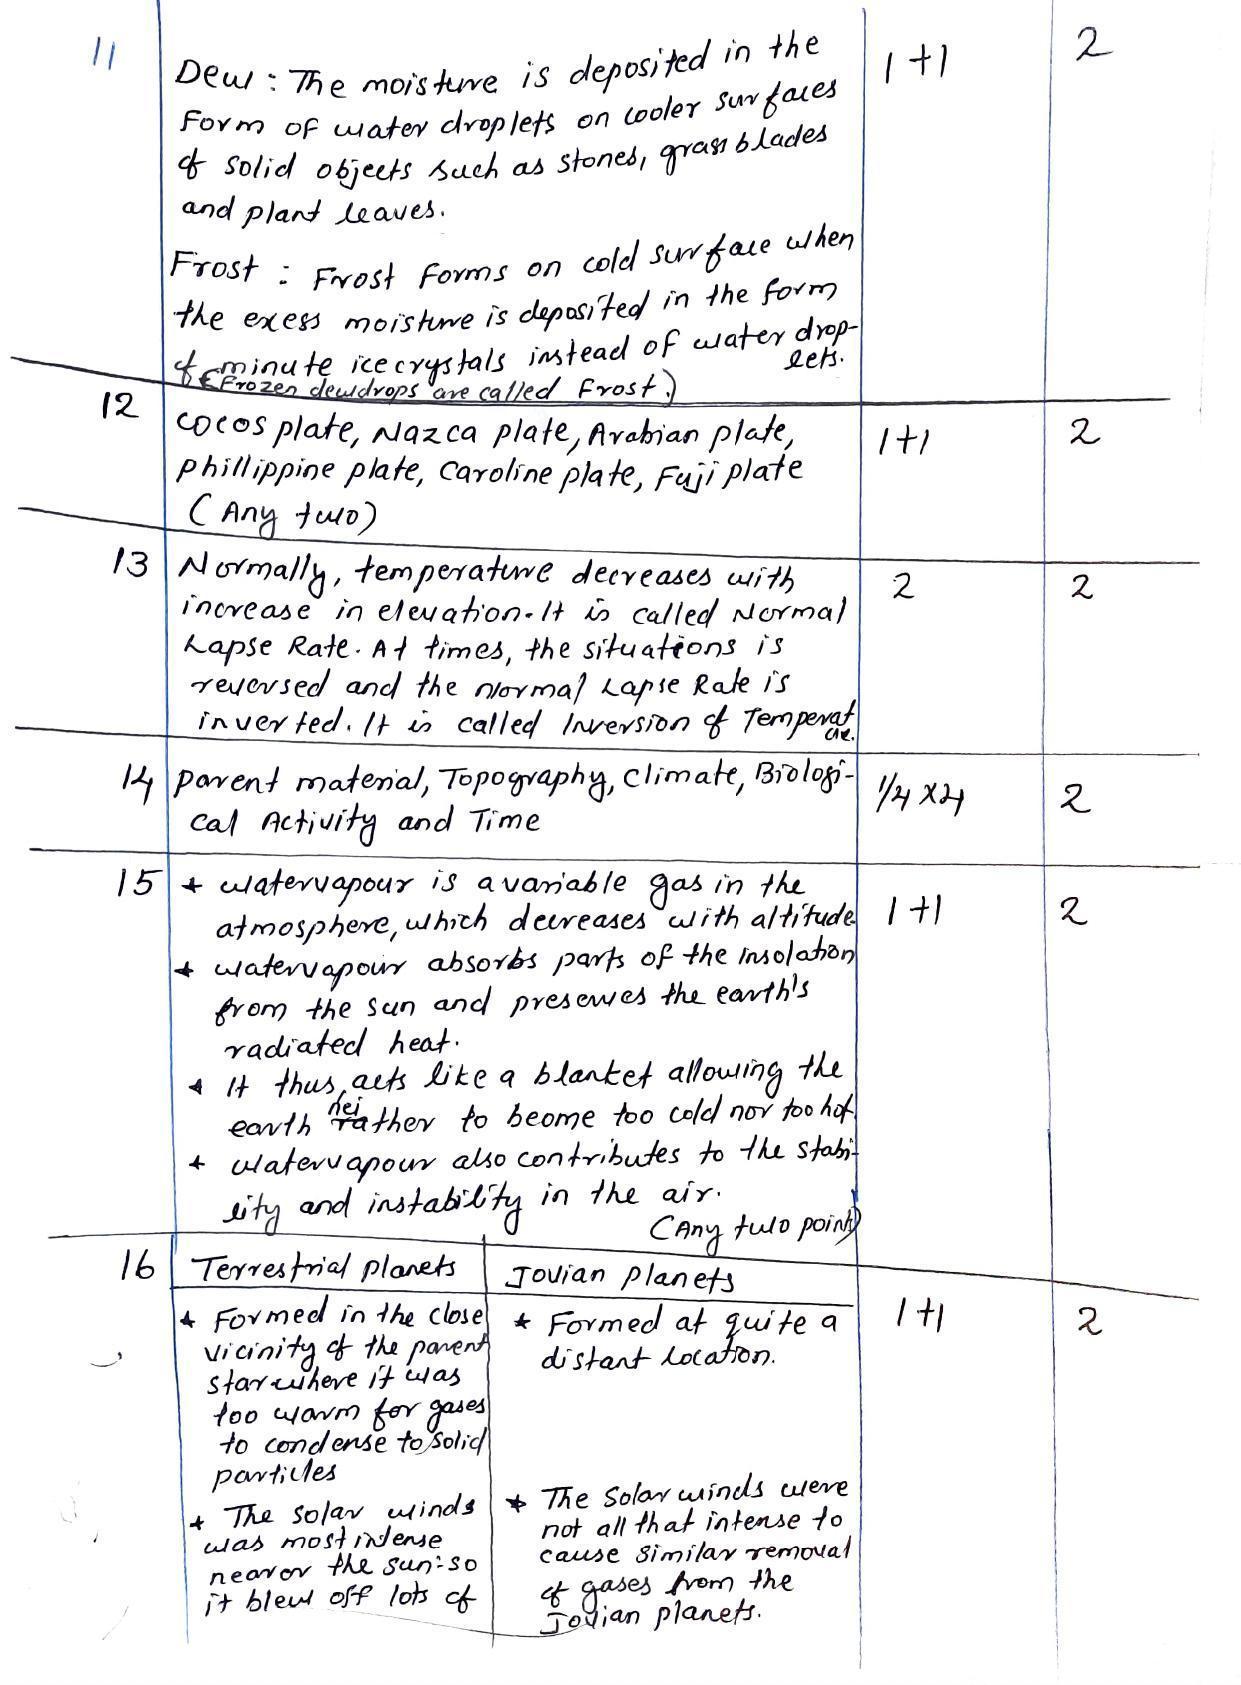 11 Dew : The moisture is deposited in the 1+1 2
Form of water droplets on cooler surfaces
of solid objects such as stones, grass blades
and plant leaves.
Frost : Frost Forms on cold surface when
the exess moisture is deposited in the form
of minute ice crystals instead of water drop-
lets.
(Frozen dewdrops are called Frost.)
12 Cocos plate, Nazca plate, Arabian plate, 1+1 2
Phillippine plate, Caroline plate, Fuji plate
(Any two)
13 Normally, temperature decreases with 2 2
increase in elevation. It is called Normal
Lapse Rate. At times, the situations is
reversed and the Normal Lapse Rate is
inverted. It is called Inversion of Temperat
ure.
14 Parent material, Topography, Climate, Biologi- 1/4 x4 2
cal Activity and Time
15 * Watervapour is a variable gas in the 1+1 2
atmosphere, which decreases with altitude
* Watervapour absorbs parts of the insolation
from the sun and preserves the earth's
radiated heat.
* It thus, acts like a blanket allowing the
earth neither to beome too cold nor too hot
* Watervapour also contributes to the stabi-
lity and instability in the air.
(Any two points)
16 Terrestrial planets Jovian planets 1+1 2
* Formed in the close
vicinity of the parent
star where it was
too warm for gases
to condense to solid
particles
* The solar winds
was most intense
nearer the sun: so
it blew off lots of
* Formed at quite a
distant location.
* The Solar winds were
not all that intense to
cause similar removal
of gases from the
Jovian planets.